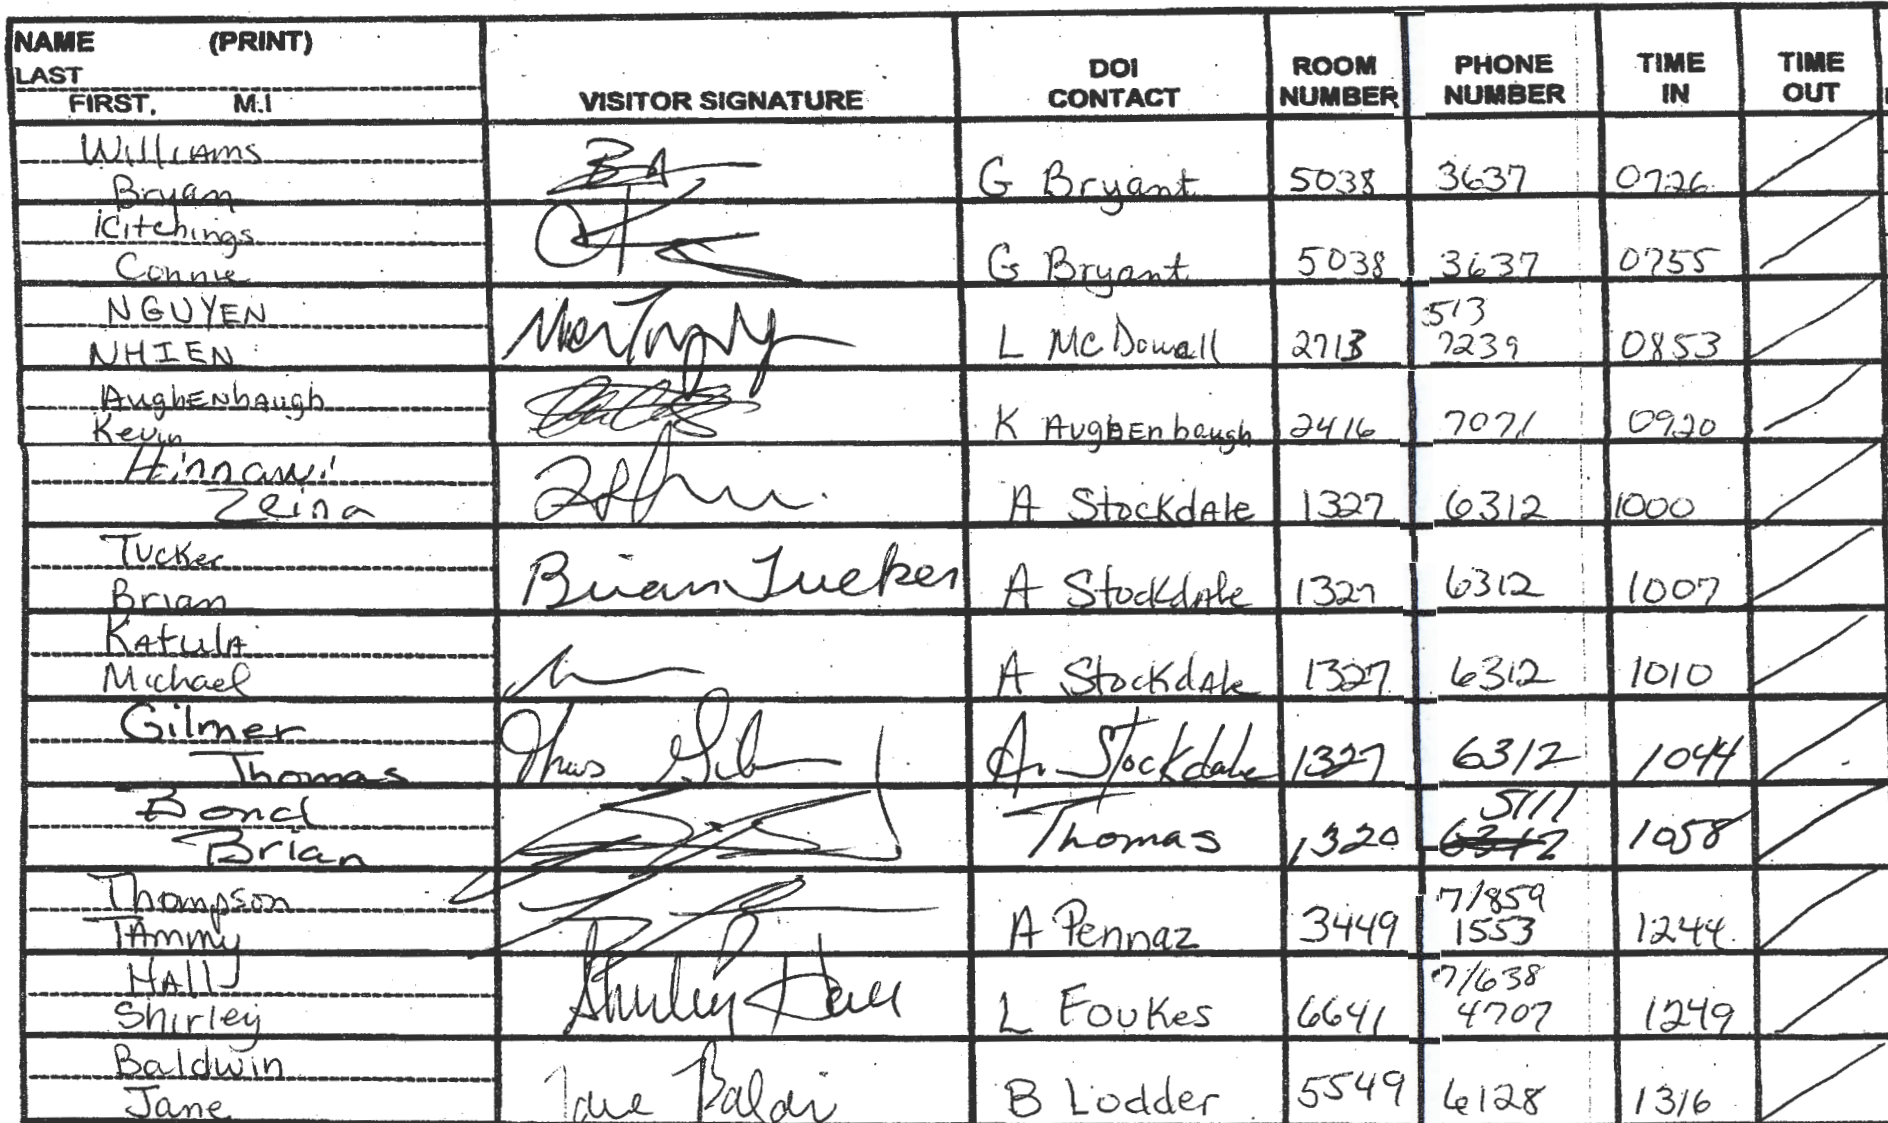 NAME (PRINT)
LAST
FIRST. M.I
VISITOR SIGNATURE
DOI CONTACT
ROOM NUMBER
PHONE NUMBER
TIME IN
TIME OUT
Williams
Bryan
G Bryant 5038 3637 0726
Kitchings
Connie
G Bryant 5038 3637 0755
NGUYEN
NHIEN
L McDowall 2713 513 7239 0853
AughEnbAugh
Kevin
K AughEnbaugh 2416 7071 0920
Hinnawi
Zeina
A StockdAle 1327 6312 1000
Tucker
Brian
Brian Tucker
A StockdAle 1327 6312 1007
KAtulA
Michael
A StockdAle 1327 6312 1010
Gilmer
Thomas
A. Stockdale 1327 6312 1044
Bond
Brian
Thomas 1320 5111 6312 1058
Thompson
TAmmy
A Pennaz 3449 7/859 1553 1244
HAll
Shirley
Shirley Hall
L Foukes 6641 7/638 4707 1249
Baldwin
Jane
B Lodder 5549 6128 1316